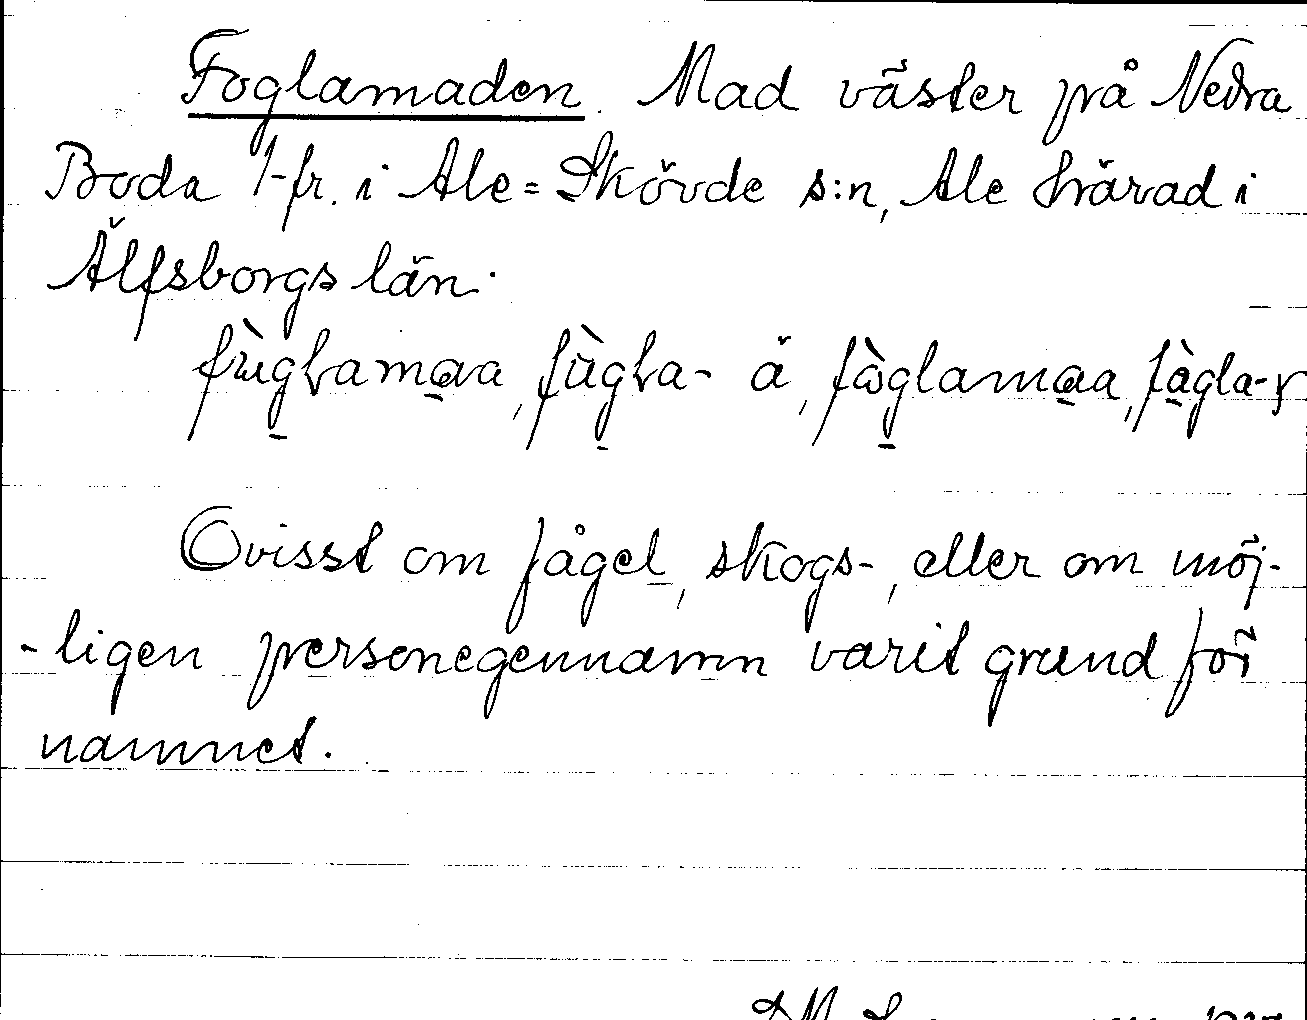 Foglamaden. Mad väster på Nedra
Boda 1-fr. i Ale=Skövde s:n, Ale härad i
Älfsborgs län.
fùglamaa, fùgla- ä, fòglamaa, fàgla-
Ovisst om fågel, skogs-, eller om möj-
-ligen personegennamn varit grund för
namnet.